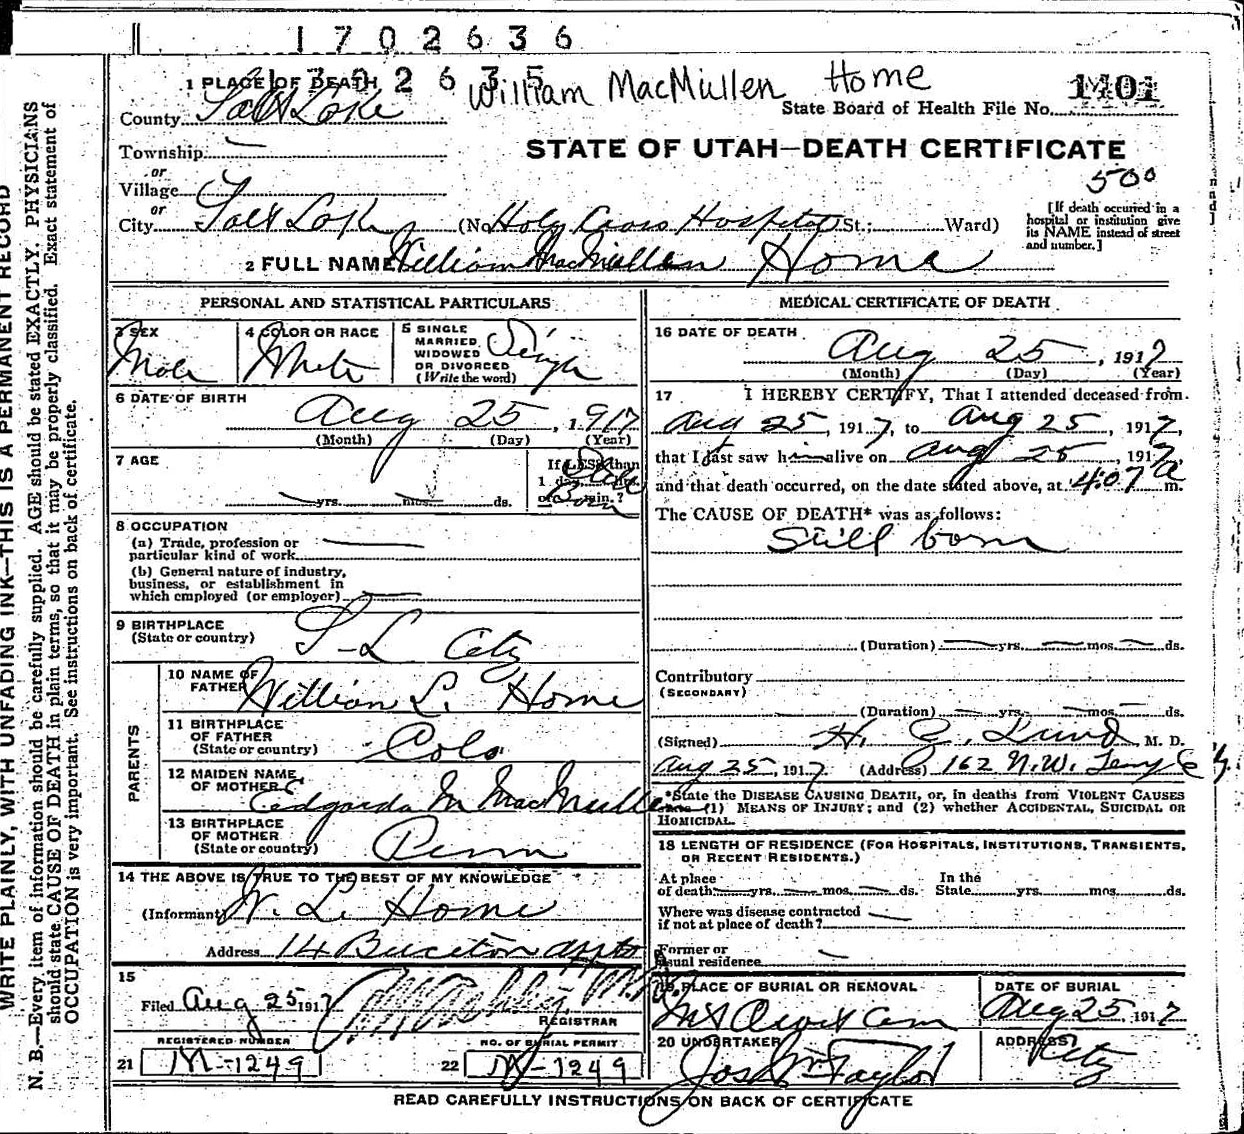 1702636
1302635
William MacMullen Home
1 PLACE OF DEATH
County Salt Lake
State Board of Health File No. 1401
STATE OF UTAH—DEATH CERTIFICATE
Township
or
Village
or
City Salt Lake (No. Holy Cross Hospital St.; Ward)
500
[If death occurred in a hospital or institution give its NAME instead of street and number.]
2 FULL NAME William MacMullen Home
PERSONAL AND STATISTICAL PARTICULARS
3 SEX
Male
4 COLOR OR RACE
White
5 SINGLE
MARRIED
WIDOWED
OR DIVORCED
(Write the word)
Single
6 DATE OF BIRTH
Aug 25, 1917
(Month) (Day) (Year)
7 AGE
yrs. mos. ds.
If LESS than
1 day hrs.
or min.?
Still
Born
8 OCCUPATION
(a) Trade, profession or
particular kind of work
(b) General nature of industry,
business, or establishment in
which employed (or employer)
9 BIRTHPLACE
(State or country)
S-L City
PARENTS
10 NAME OF
FATHER
William L. Home
11 BIRTHPLACE
OF FATHER
(State or country)
Colo
12 MAIDEN NAME
OF MOTHER
Edgarda M MacMullen
13 BIRTHPLACE
OF MOTHER
(State or country)
Penn
14 THE ABOVE IS TRUE TO THE BEST OF MY KNOWLEDGE
(Informant) W. L. Home
Address 14 Appts
15
Filed Aug 25 1917
REGISTRAR
REGISTERED NUMBER
21 M-1249
NO. OF BURIAL PERMIT
22 M-1249
MEDICAL CERTIFICATE OF DEATH
16 DATE OF DEATH
Aug 25, 1917
(Month) (Day) (Year)
17 I HEREBY CERTIFY, That I attended deceased from
Aug 25, 1917, to Aug 25, 1917,
that I last saw him alive on Aug 25, 1917
and that death occurred, on the date stated above, at 4:07 a m.
The CAUSE OF DEATH* was as follows:
Still born
(Duration) yrs. mos. ds.
Contributory
(SECONDARY)
(Duration) yrs. mos. ds.
(Signed) H. Z. Lund, M. D.
Aug 25, 1917 (Address) 162 N.W. Temp
*State the DISEASE CAUSING DEATH, or, in deaths from VIOLENT CAUSES
(1) MEANS OF INJURY; and (2) whether ACCIDENTAL, SUICIDAL OR
HOMICIDAL.
18 LENGTH OF RESIDENCE (FOR HOSPITALS, INSTITUTIONS, TRANSIENTS,
OR RECENT RESIDENTS.)
At place
of death yrs. mos. ds.
In the
State yrs. mos. ds.
Where was disease contracted
if not at place of death?
Former or
usual residence
19 PLACE OF BURIAL OR REMOVAL
Mt Olivet Cem
DATE OF BURIAL
Aug 25, 1917
20 UNDERTAKER
Jos Wm Taylor
ADDRESS
City
READ CAREFULLY INSTRUCTIONS ON BACK OF CERTIFICATE
WRITE PLAINLY, WITH UNFADING INK—THIS IS A PERMANENT RECORD
N. B.—Every item of information should be carefully supplied. AGE should be stated EXACTLY. PHYSICIANS
should state CAUSE OF DEATH in plain terms, so that it may be properly classified. Exact statement of
OCCUPATION is very important. See instructions on back of certificate.